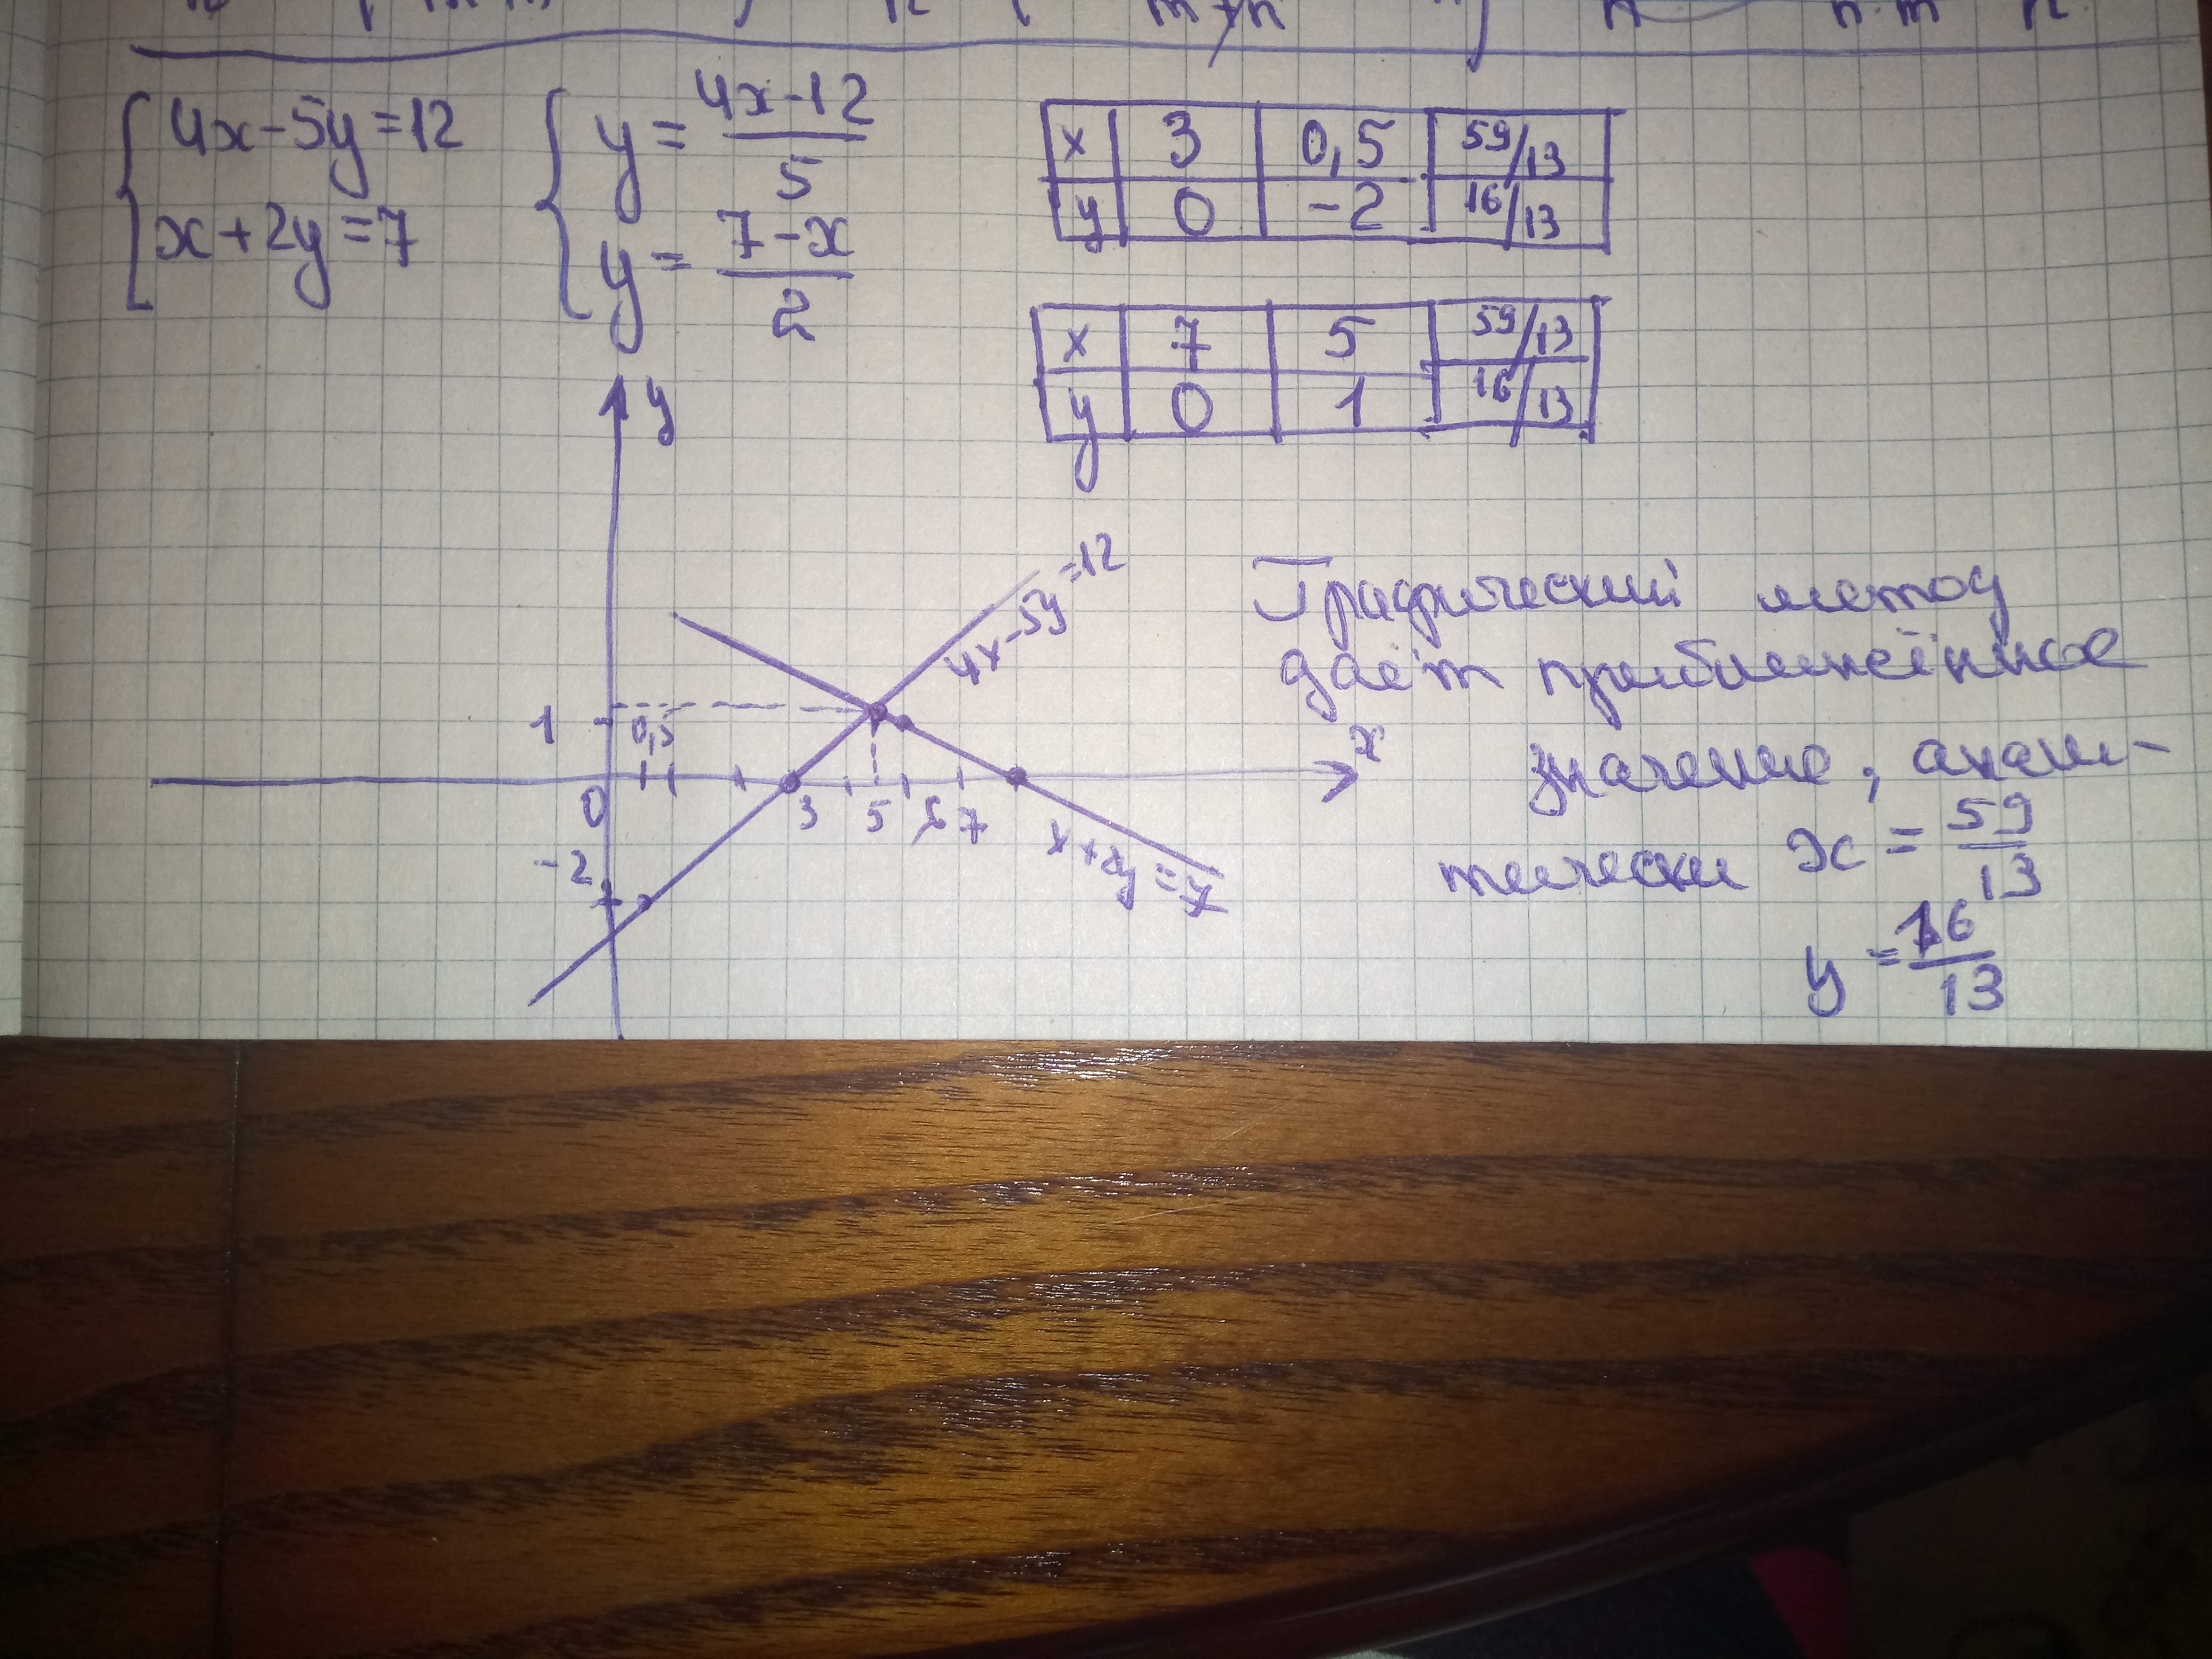 4x-5y=12
x+2y=7
y = 4x-12 / 5
y = 7-x / 2
x 3 0,5 59/13
y 0 -2 16/13
x 7 5 59/13
y 0 1 16/13
y
4x-5y=12
1 0,5
x
0 3 5 6 7
x+2y=7
-2
Графический метод
даёт приближённое
значение, анали-
тически x = 59/13
y = 16/13